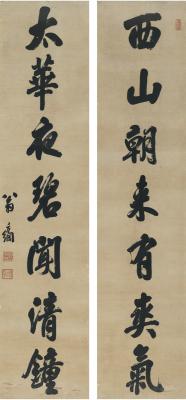 西山朝來有爽氣
太華夜碧聞清鐘
翁同龢